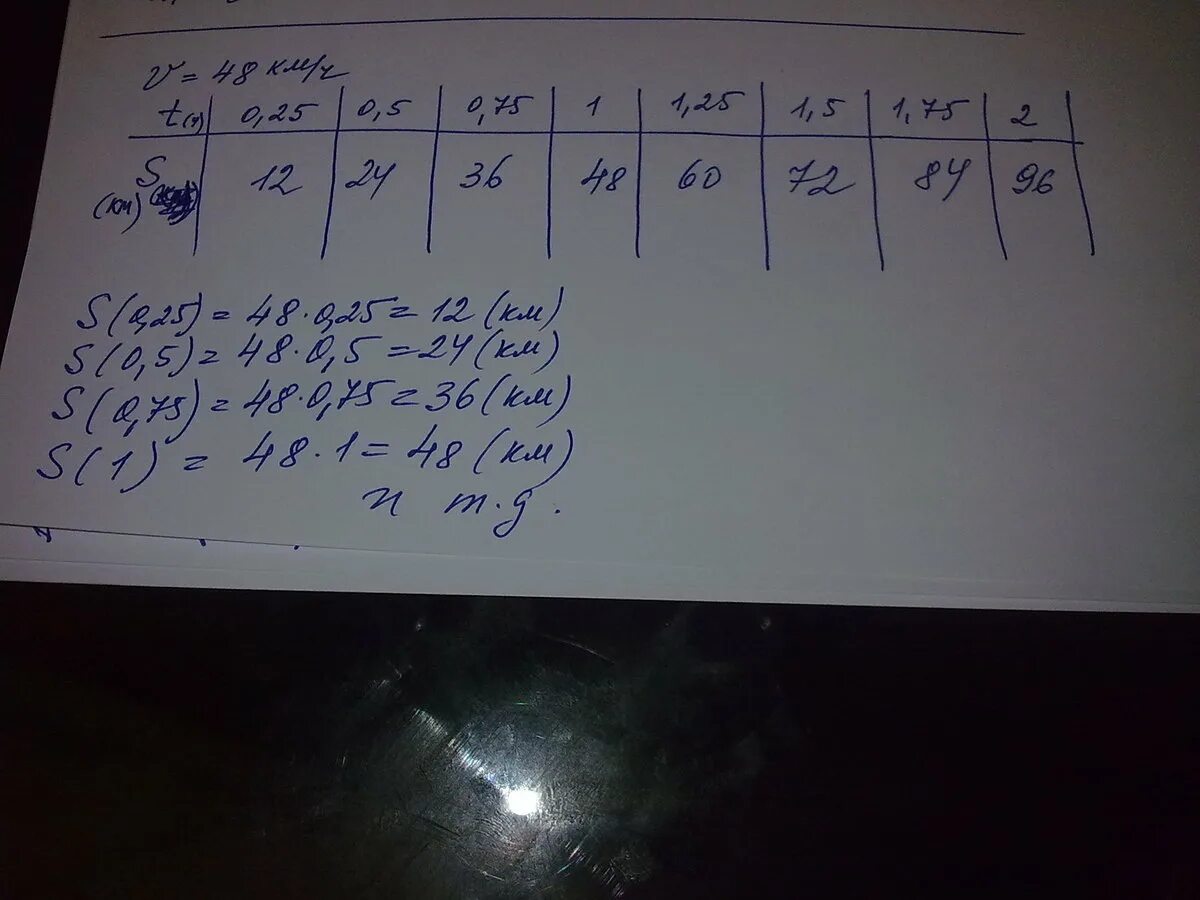 v = 48 км/ч
t(ч) 0,25 0,5 0,75 1 1,25 1,5 1,75 2
S 12 24 36 48 60 72 84 96
(км)
S(0,25) = 48 · 0,25 = 12 (км)
S(0,5) = 48 · 0,5 = 24 (км)
S(0,75) = 48 · 0,75 = 36 (км)
S(1) = 48 · 1 = 48 (км)
и т.д.